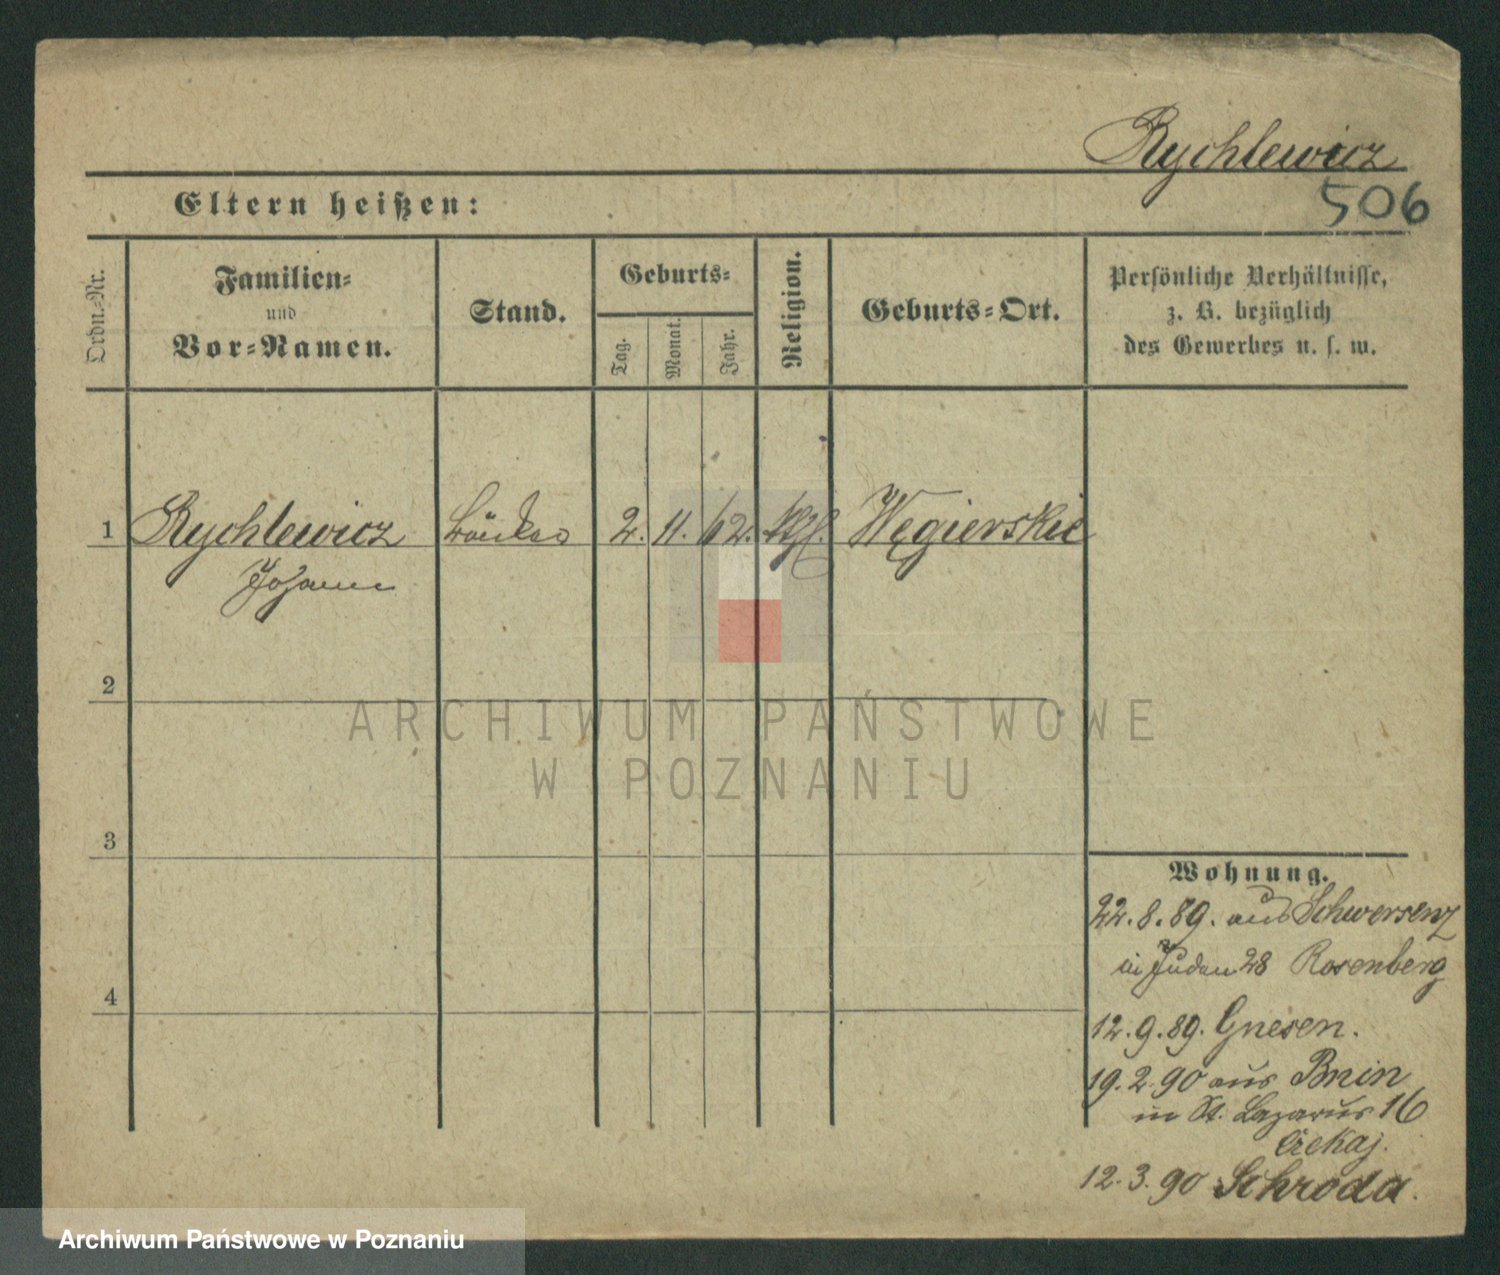 Rychlewicz
506
Eltern heißen:
Ordn.=Nr.
Familien=
und
Vor=Namen.
Stand.
Geburts=
Tag.
Monat.
Jahr.
Religion.
Geburts=Ort.
Persönliche Verhältnisse,
z. B. bezüglich
des Gewerbes u. s. w.
1 Rychlewicz 2. 11. 62. kthl. Węgierskie
Johann
2
ARCHIWUM PAŃSTWOWE
W POZNANIU
3
Wohnung.
22.8.89. aus Schwersenz
in Juden 28 Rosenberg
4
12.9.89. Gnesen.
19.2.90 aus Bnin
in St. Lazarus 16
12.3.90 Schroda.
Archiwum Państwowe w Poznaniu